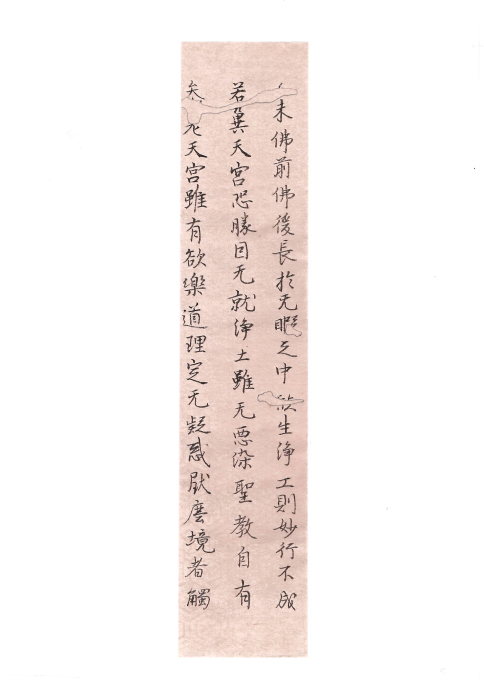 未佛前佛後長於无暇之中 生淨工則妙行不成
若冀天宮恐勝因无就淨土雖无悪染聖教自有
矣 天宮雖有欲樂道理定无疑惑厭塵境者觸